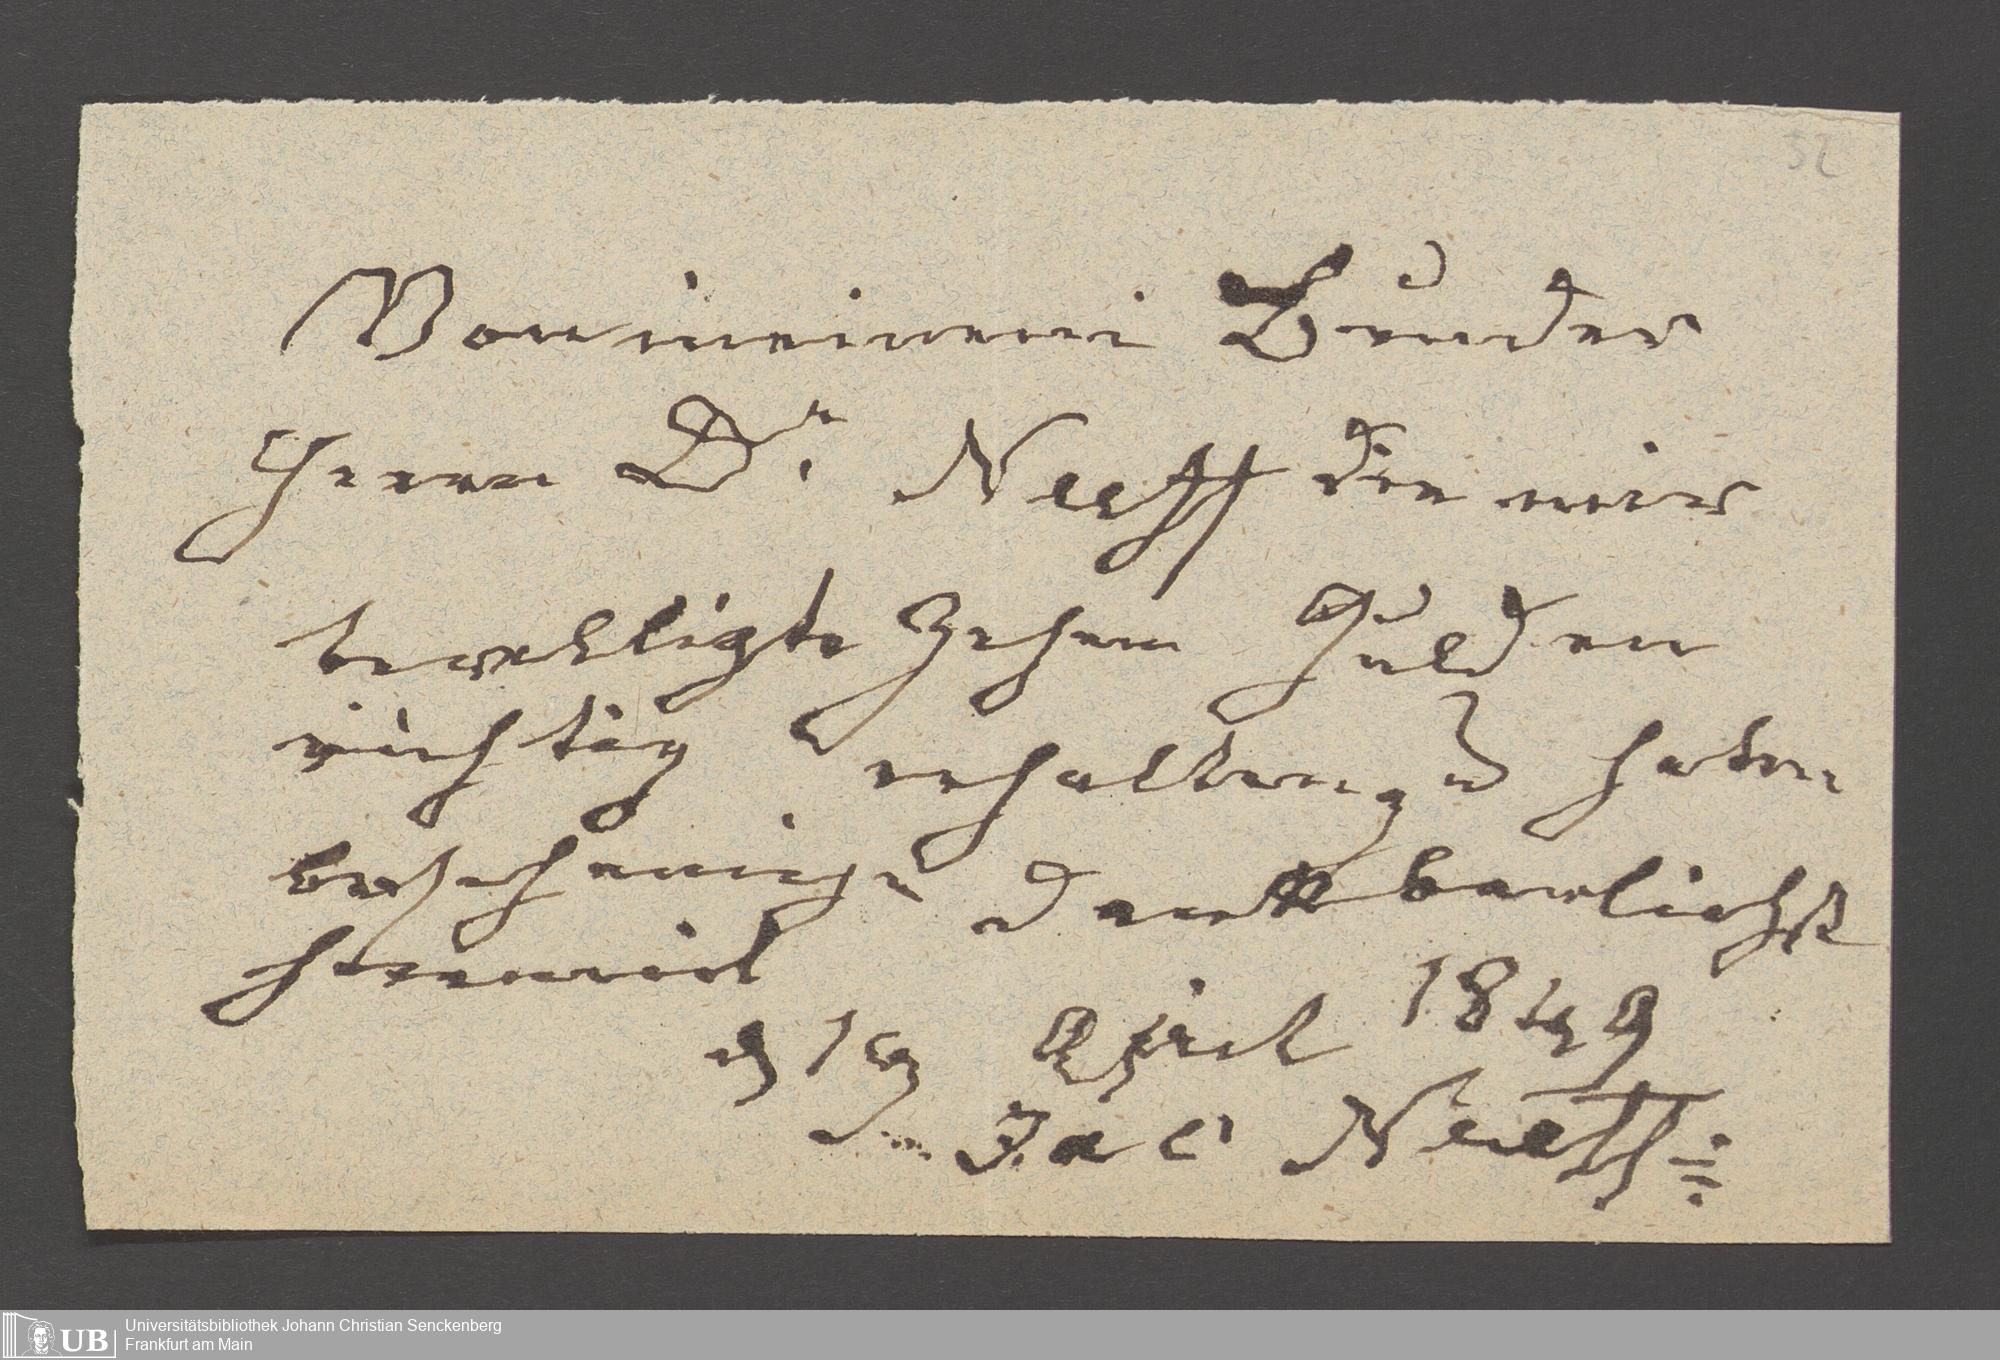 32
Von meinem Bruder
Herrn Dr. Neeff die mir
bewilligte Zehen Gulden
richtig erhalten zu haben
bescheinige dankbarlichst
hiermit
d 19 April 1849
Jac Neeff
UB
Universitätsbibliothek Johann Christian Senckenberg
Frankfurt am Main